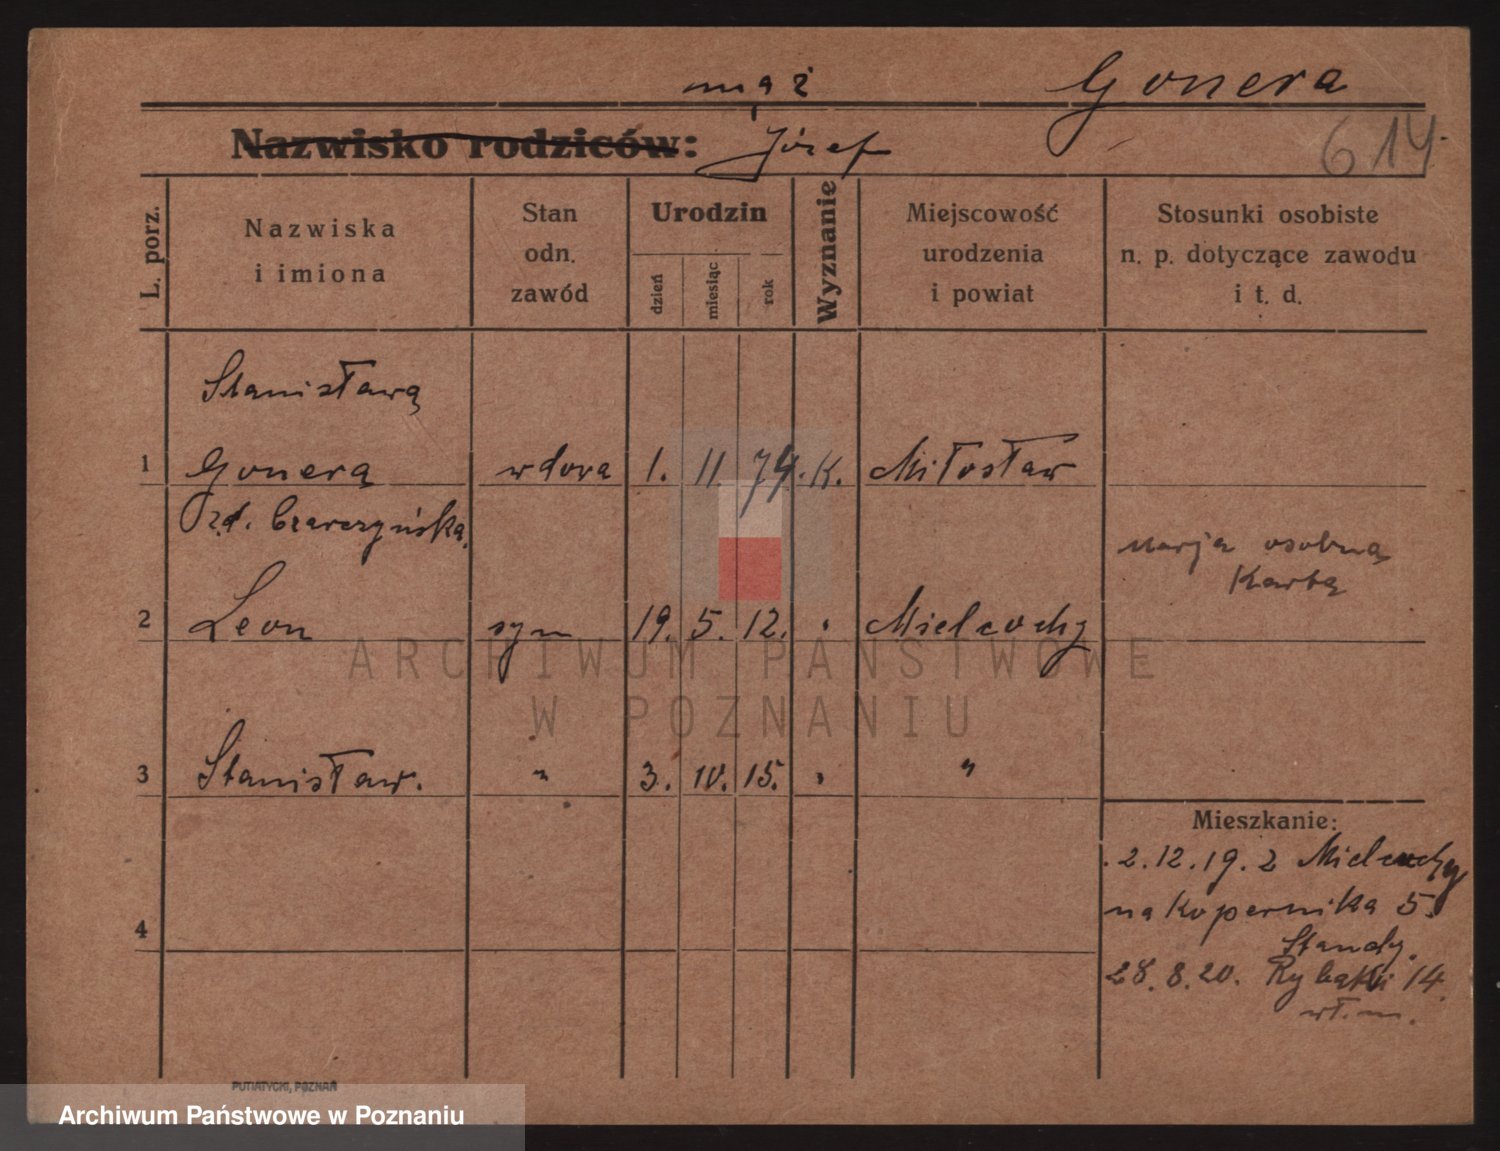 mąż Gonera
Nazwisko rodziców: Józef
614.
L. porz.
Nazwiska
i imiona
Stan
odn.
zawód
Urodzin
dzień
miesiąc
rok
Wyznanie
Miejscowość
urodzenia
i powiat
Stosunki osobiste
n. p. dotyczące zawodu
i t. d.
Stanisława
1 Gonera wdova 1. 11 74. K. Miłosław
zd.
Marja osobną
Kartą
2 Leon syn 19. 5. 12. " Mielcochy
3 Stanisław. " 3. 10. 15. " "
Mieszkanie:
2.12.19. z
na Kopernika 5.
4
28.8.20. Rybaki 14.
wł. m.
PUTIATYCKI, POZNAŃ
ARCHIWUM PAŃSTWOWE
W POZNANIU
Archiwum Państwowe w Poznaniu